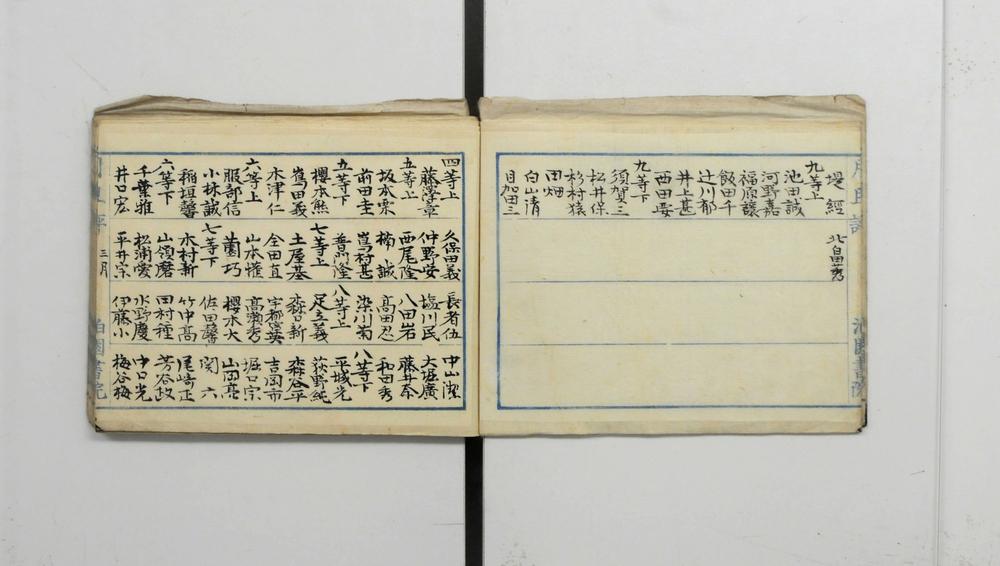 堤 経
九等上
池田誠
河野嘉
福原譲
飯田千
辻川郁
井上甚
西田
九等下
須賀三
松井保
杉村猿
田畑
白山清
目加田三
四等上
藤澤章
五等上
坂本栗
前田圭
五等下
櫻本熊
嶌田義
木津仁
六等上
服部信
小林誠
稲垣馨
六等下
千葉雅
井口宏
久保田義
仲野安
西尾隆
楠 誠
嶌村甚
普門隆
七等上
土屋基
金田直
山本権
薗 巧
七等下
木村新
山領磨
松浦
平井宗
長者伍
塩川民
八田岩
高田忍
染川菊
八等上
足立義
森口新
宇都宮英
高瀬秀
櫻木大
佐田馨
竹中高
田村種
水野慶
伊藤小
中山潔
大堀廣
藤井泰
和田秀
八等下
平城光
荻野純
森谷平
吉岡市
堀口宗
山岡亮
関 六
尾崎正
芳谷政
中口光
梅谷梅
三月
泊園書院